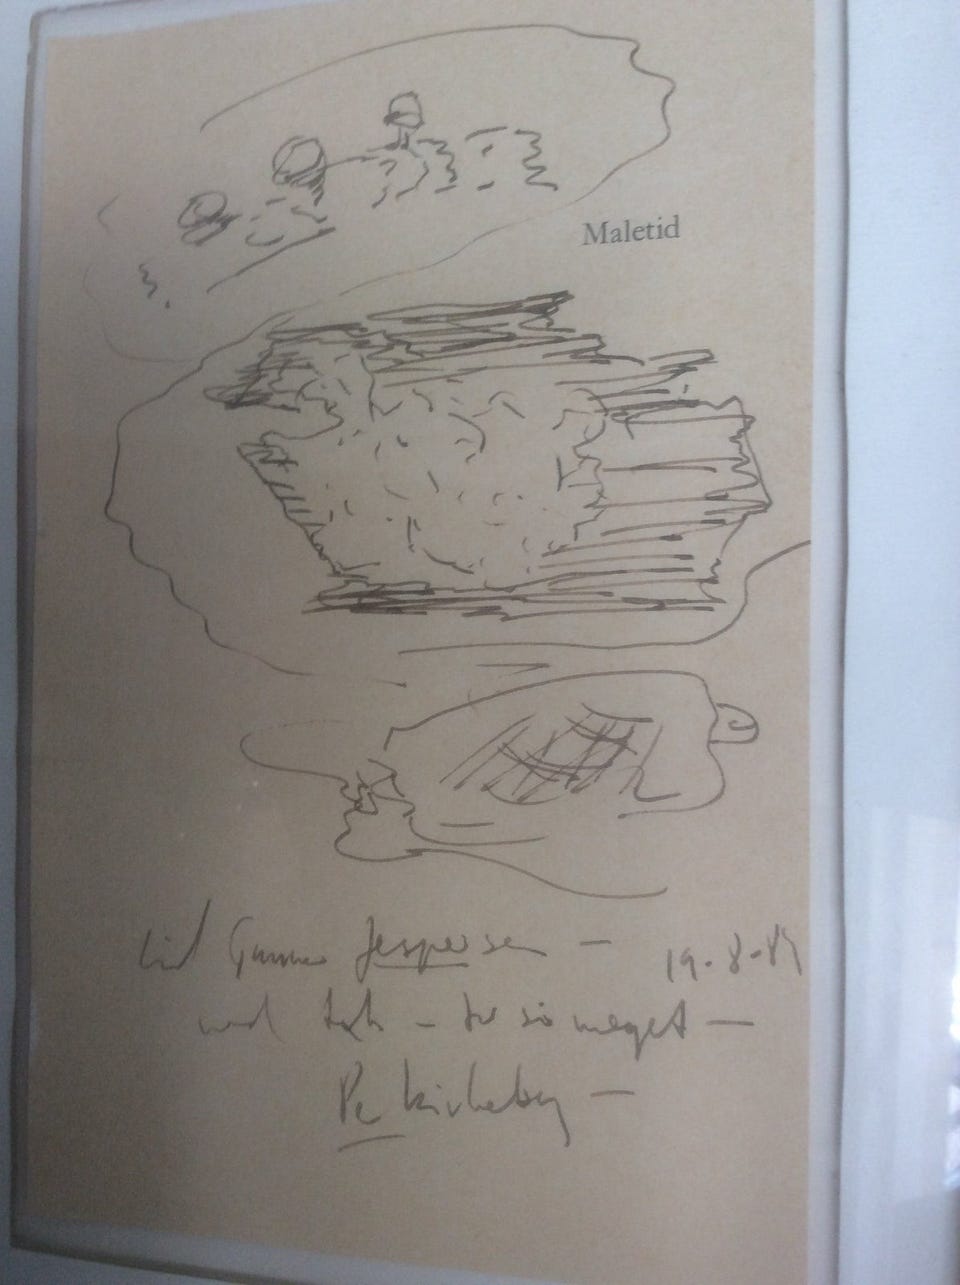 Maletid
til Gunnar Jespersen – 19-8-89
med tak – for så meget –
Per Kirkeby –